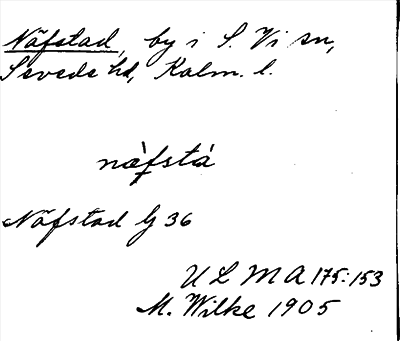 Näfstad, by i S. Vi sn,
Sevede hd, Kalm. l.
näfstá
Näfstad Lj 36
U L M A 175:153
M. Wilke 1905